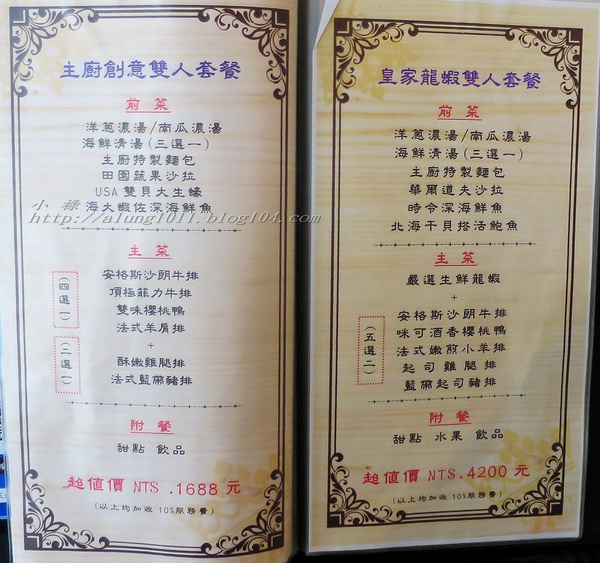 主廚創意雙人套餐
前 菜
洋蔥濃湯/南瓜濃湯
海鮮清湯(三選一)
主廚特製麵包
田園蔬果沙拉
USA雙貝大生蠔
海大蝦佐深海鮮魚
小祿
http://alung1011.blog104.com/
主 菜
(四選一)
安格斯沙朗牛排
頂極菲力牛排
雙味櫻桃鴨
法式羊肩排
+
(二選一)
酥嫩雞腿排
法式藍帶豬排
附 餐
甜點 飲品
超值價 NTS .1688 元
(以上均加收 10%服務費)
皇家龍蝦雙人套餐
前 菜
洋蔥濃湯/南瓜濃湯
海鮮清湯(三選一)
主廚特製麵包
華爾道夫沙拉
時令深海鮮魚
北海干貝搭活鮑魚
主 菜
嚴選生鮮龍蝦
+
(五選二)
安格斯沙朗牛排
咪可酒香櫻桃鴨
法式嫩煎小羊排
起司雞腿排
藍帶起司豬排
附 餐
甜點 水果 飲品
超值價 NTS.4200 元
(以上均加收10%服務費)